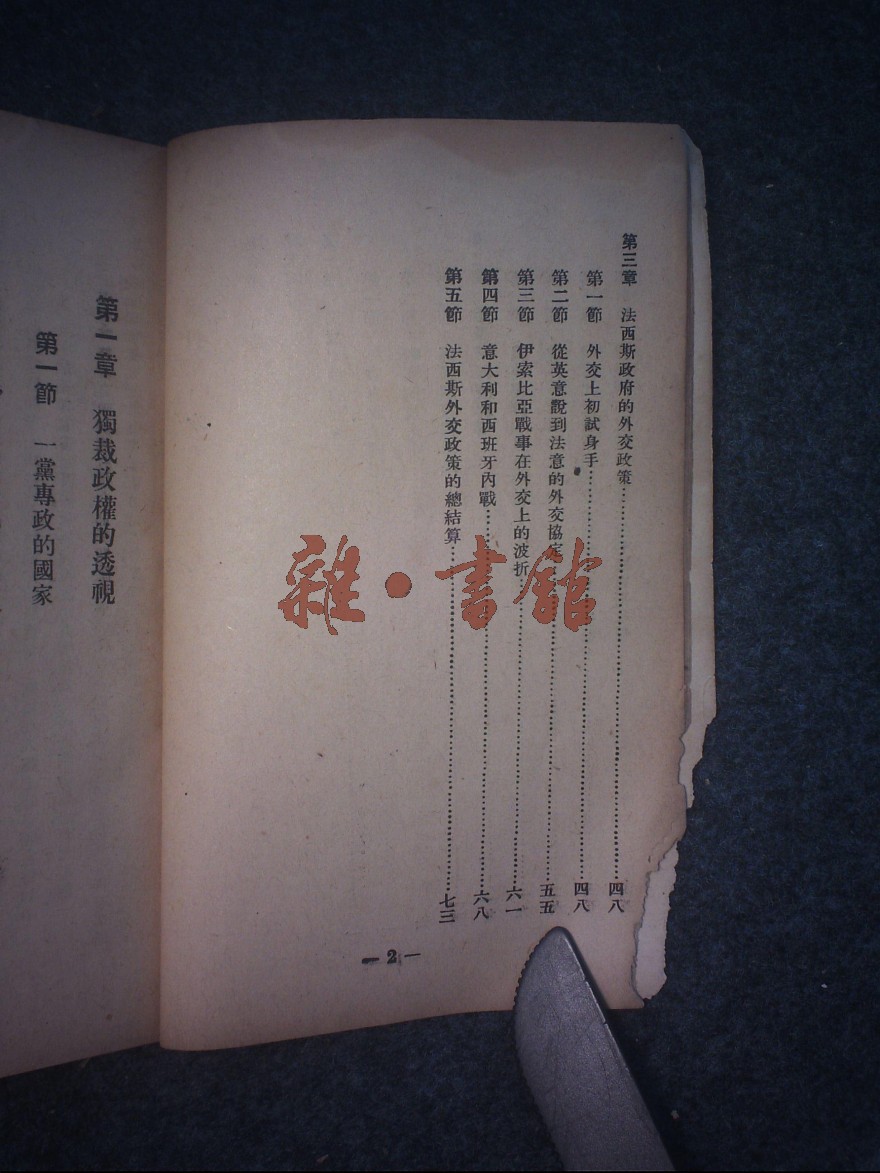 第三章 法西斯政府的外交政策………四八
第一節 外交上初試身手………四八
第二節 從英意說到法意的外交協定………五五
第三節 伊索比亞戰事在外交上的波折………六一
第四節 意大利和西班牙內戰………六八
第五節 法西斯外交政策的總結算………七三
— 2 —
第一章 獨裁政權的透視
第一節 一黨專政的國家
雜·書館